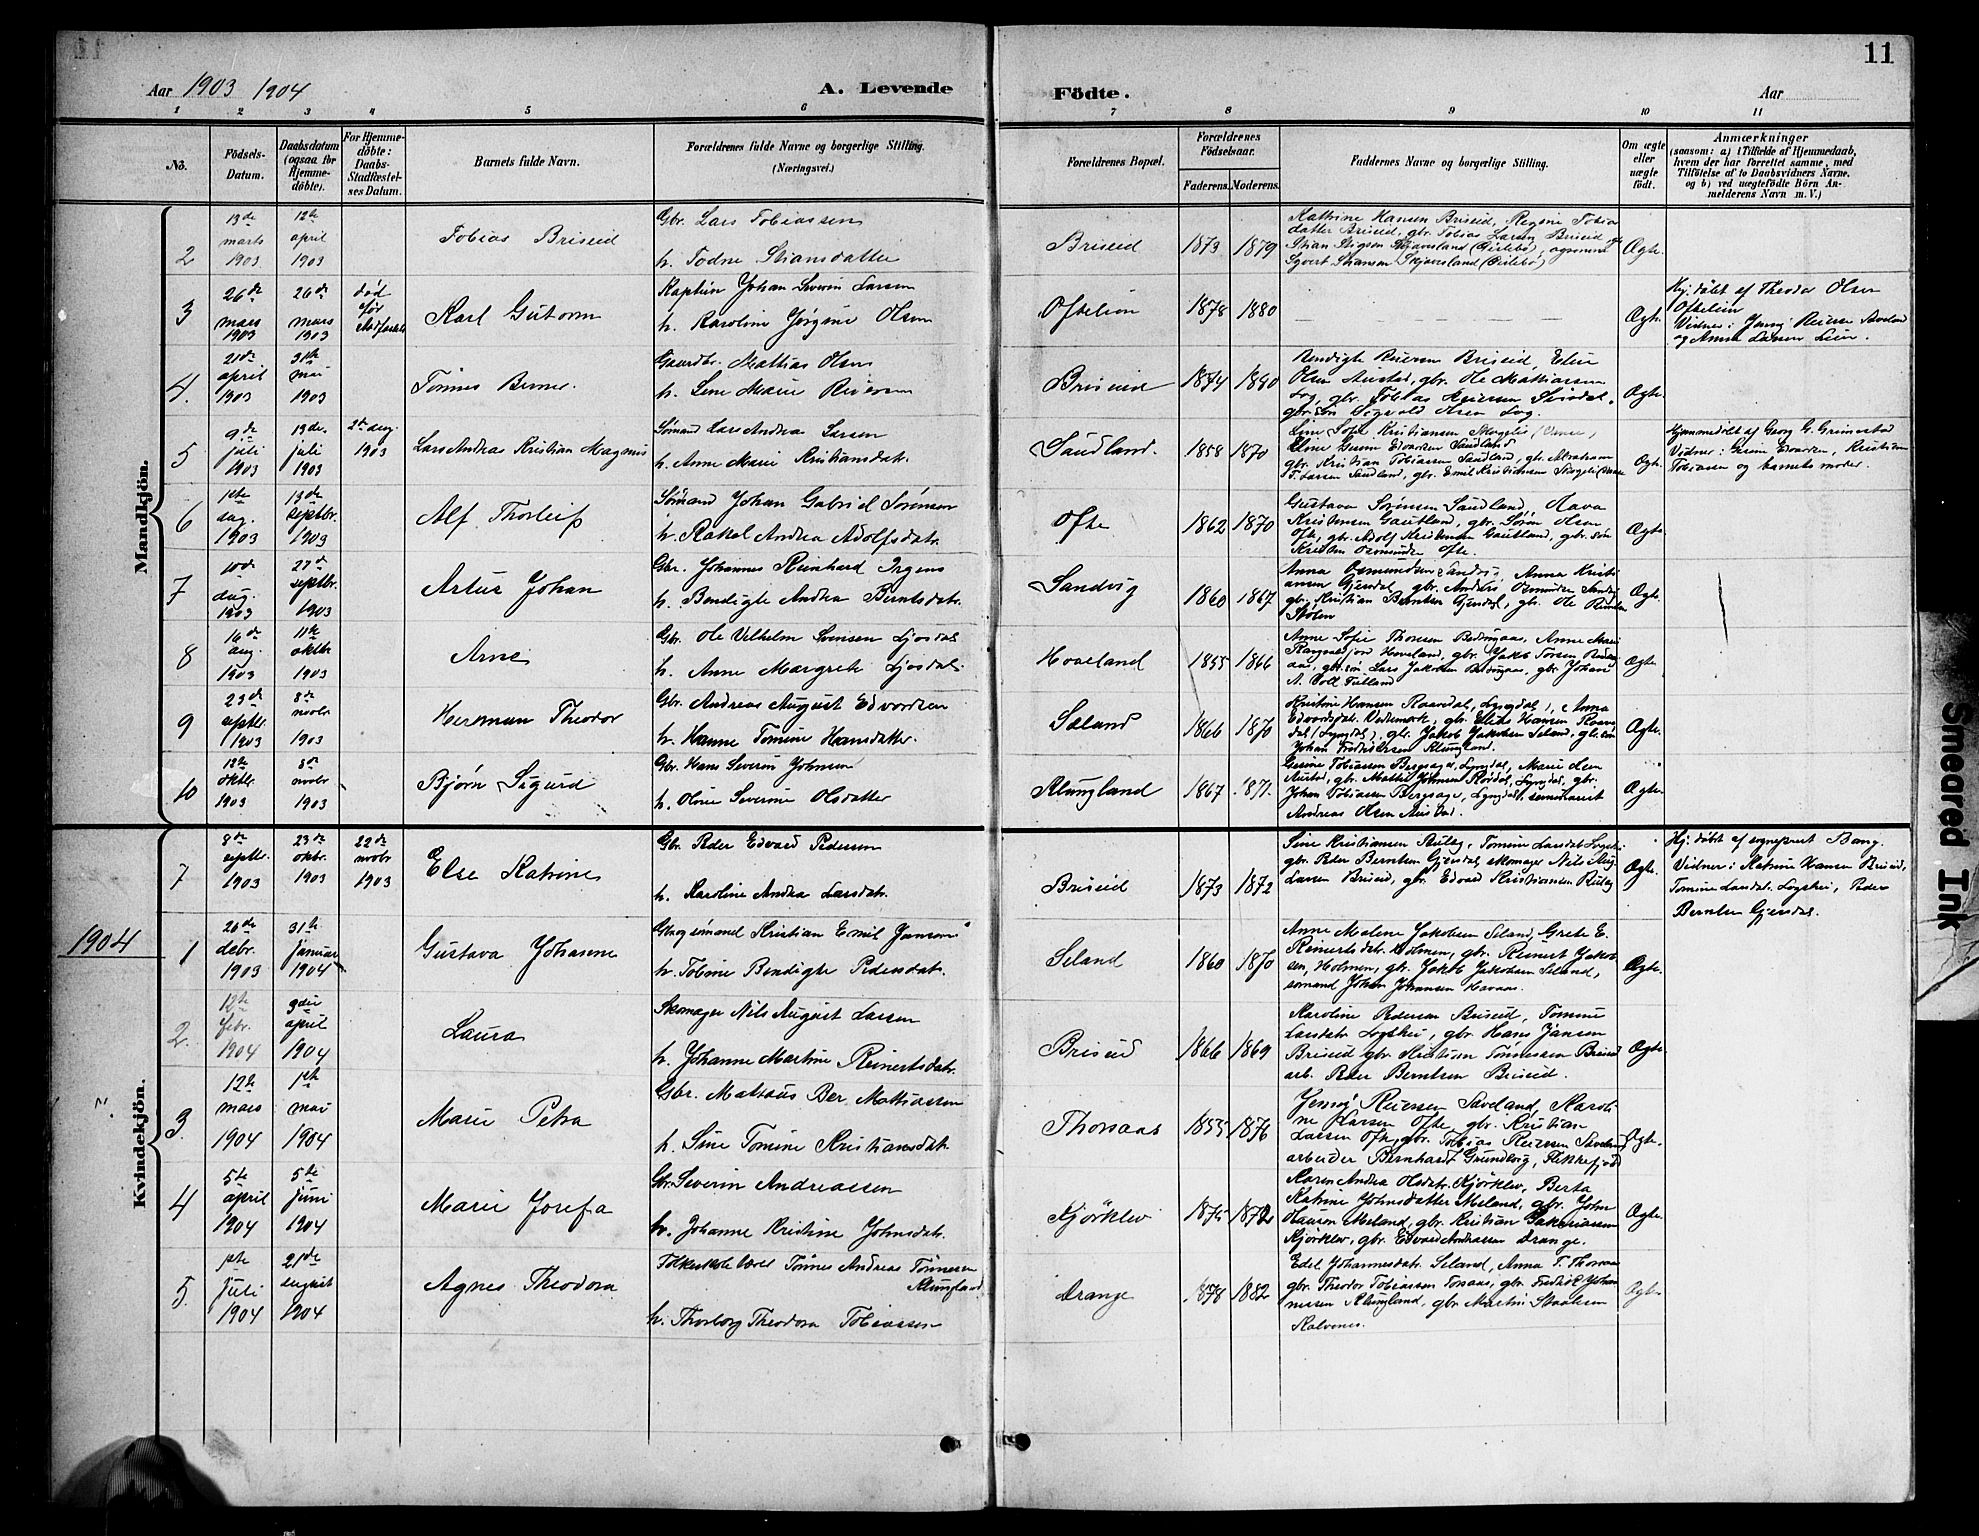 11
Aar 1903 1904
A. Levende
Födte.
Aar
1 2 3 4 5 6 7 8 9 10 11
No.
Födsels-Datum.
Daabsdatum (ogsaa for Hjemme-döbte).
For Hjemme-döbte: Daabs-Stadfæstel-ses Datum.
Barnets fulde Navn.
Forældrenes fulde Navne og borgerlige Stilling. (Næringsvei.)
Forældrenes Bopæl.
Forældrenes Födselsaar.
Faderens. Moderens.
Faddernes Navne og borgerlige Stilling.
Om ægte eller uægte födt.
Anmærkninger
(saasom: a) i Tilfælde af Hjemmedaab, hvem der har forrettet samme, med Tilföielse af to Daabsvidners Navne. og b) ved uægtefödte Börn An-melderens Navn m. V.)
Mandkjön.
2 13de marts 1903 12te april 1903 Tobias Briseid
Gbr. Lars Tobiassen
h. Todne Stiansdatter
Briseid 1873 1879
Kathrine Hansen Briseid, Regine Tobias
datter Briseid, gbr. Tobias Larsen Briseid
Ægte.
3 26de mars 1903 26de mars 1903 død før Karl Gutorm
Kaptein Johan Severin Larsen
h. Karoline Jørgine Olsen
Oftelien 1878 1880 Ægte.
Hj. døbt af Theodor Olsen
Oftelien
Vidner: Jenny Reierse Saveland
og Anna Larsen Leier.
4. 21de april 1903 31te mai 1903 Tønnes Berner.
Gaardbr. Mathias Olsen
h. Lene Marie Reiersen
Briseid 1874 1880
Bendigte Reiersen Briseid, Eline
Olsen Austad, gbr. Ole Mattiassen
Log, gbr. Tobias Reiersen
gbr. søn Sigvald Olsen Log.
Ægte.
5 9de juli 1903 19de juli 1903 2de aug. 1903 Lars Andreas Kristian Magnus
Sømand Lars Andreas Larsen
h. Anne Marie Kristiansdatr.
Saudland. 1858 1870
gbr. Kristian Tobiassen Sandland, gbr. Abraham
T. Larsen Sandland, gbr. Emil Kristiansen
Ægte.
Hjemmedøbt af Georg G. Grimestad
Vidner: Gesine Edvardsen, Kristian
Tobiassen og barnets moder.
6 1ste aug. 1903 13de septbr. 1903 Alf Thorleif
Sømand Johan Gabriel Sørensen
h. Rakel Andrea Adolfsdatr.
Ofte 1862 1870
Gustava Sørensen Saudland, Hava
Kristensen Gautland, gbr. Søren Olsen
Ofte, gbr. Adolf Kristensen Gautland, gbr. søn
Kristen Osmundsen Ofte.
Ægte.
7 10de aug. 1903 27de septbr. 1903 Artur Johan
Gbr. Johannes Reinhard Irgens
h. Bendigte Andrea Berntsdatr.
Sandvig 1860 1867
Anna Osmundsen Sandvig, Anna Kristi
ansen Gjersdal, gbr. Andreas Osmundsen Sandvig
gbr. Kristian Berntsen Gjersdal, gbr. Ole
Stølen
Ægte.
8 16de aug. 1903 11te oktbr 1903 Arne
Gbr. Ole Vilhelm Svensen Ljosdal
h. Anne Margrete Ljosdal.
Hoveland 1855 1866
Anne Sofie Thorsen
Hoveland, gbr. Jakob Torsen
gbr. søn Lars Jakobsen gbr. Johan
Ægte.
9 23de septbr. 1903 8de novbr 1903 Herman Theodor
Gbr. Andreas August Edvardsen
h. Hanne Tomine Hansdatter.
Sæland 1866 1870
Kristine Hansen Raavdal, Lyngdal, Anna
Edvardsdatr. gbr. Hansen Raav
dal, Lyngdal, gbr. Jakob Jakobsen Seland, gbr. søn
Johan Fredriksen Klungland.
Ægte.
10 12te oktbr. 1903 8de novbr 1903 Bjørn Sigurd
Gbr. Hans Severin Johnsen
h. Oline Severine Olsdatter
Klungland 1867 1871.
Gesine Tobiassen Bergsager, Lyngdal, Marie Olsen
Austad, gbr. Lyngdal, gbr.
Johan Tobiassen Bergsager, Lyngdal, seminarist
Andreas Olsen Austad.
Ægte.
Kvindekjön.
7 8de septbr. 1903 23de oktbr. 1903 22de novbr 1903 Else Katrine
Gbr. Peder Edvard Pedersen
h. Karoline Andrea Larsdatr.
Briseid 1873 1872
Sine Kristiansen Tomine Larsdat
gbr. Peder Berntsen Gjersdal, skomager Nils Aug.
Larsen Briseid, gbr. Edvard Kristiansen
Ægte.
Hj. døbt af sogneprest Bang.
Vidner: Katrine Hansen Briseid,
Tomine Larsdat. Peder
Berntsen Gjersdal.
1904
1 26de debr. 1903 31te januar 1904 Gustava Johanne
Gbr. og sømand Kristian Emil Jansen
h. Tobine Bendigte Pedersdatr.
Seland 1860 1870
Anne Malene Jakobsen Seland, Grete E.
Reinertsdatr. Holmen, gbr. Reinert Jakob
sen, Holmen, gbr. Jakob Jakobsen Seland,
sømand Johan Johansen Havaas.
Ægte.
2. 12te febr. 1904 3die april 1904 Laura
Skomager Nils August Larsen
h. Johanne Martine Reinertsdatr.
Briseid 1866 1869
Karoline Pedersen Briseid, Tomine
Larsdatr. gbr. Hans Jansen
Briseid gbr. Kristian Tønnessen Briseid
arb. Peder Berntsen Briseid.
Ægte.
3. 12te mars 1904 1ste mai 1904 Marie Petra
Gbr. Mathæus Ber. Mattiassen
h. Sine Tomine Kristiansdatr.
Thorsaas 1855 1876
Jenny Reiersen Saveland, Karoli
ne Larsen Ofte, gbr. Kristian
Larsen Ofte, gbr. Tobias Reiersen Saveland
arbeider Bernhardt Grundvig, Flekkefjord
Ægte.
4 5te april 1904 5te juni 1904 Marie Josefa
Gbr. Severin Andreassen
h. Johanne Kristine Johnsdatr.
Kjørklev 1875 1872
Karen Andrea Olsdatr. Kjørklev, Berta
Katrine Johnsdatter Meland, gbr. John
Hansen Meland, gbr. Kristian Sakariassen
Kjørklev, gbr. Edvard Andreassen Drange.
Ægte.
5. 1ste juli 1904 21de august 1904 Agnes Theodora
Folkeskolelærer Tønnes Andreas Tønnesen
Klungland
h. Thorborg Theodora Tobiassen
Drange 1878 1882
Edel Johannesdatr. Seland, Anna T. Thorsaas
gbr. Theodor Tobiassen Torsaas, gbr. Fredrik Johan
nessen Klungland, gbr. Martin
Kalvenes.
Ægte.
Smeared Ink